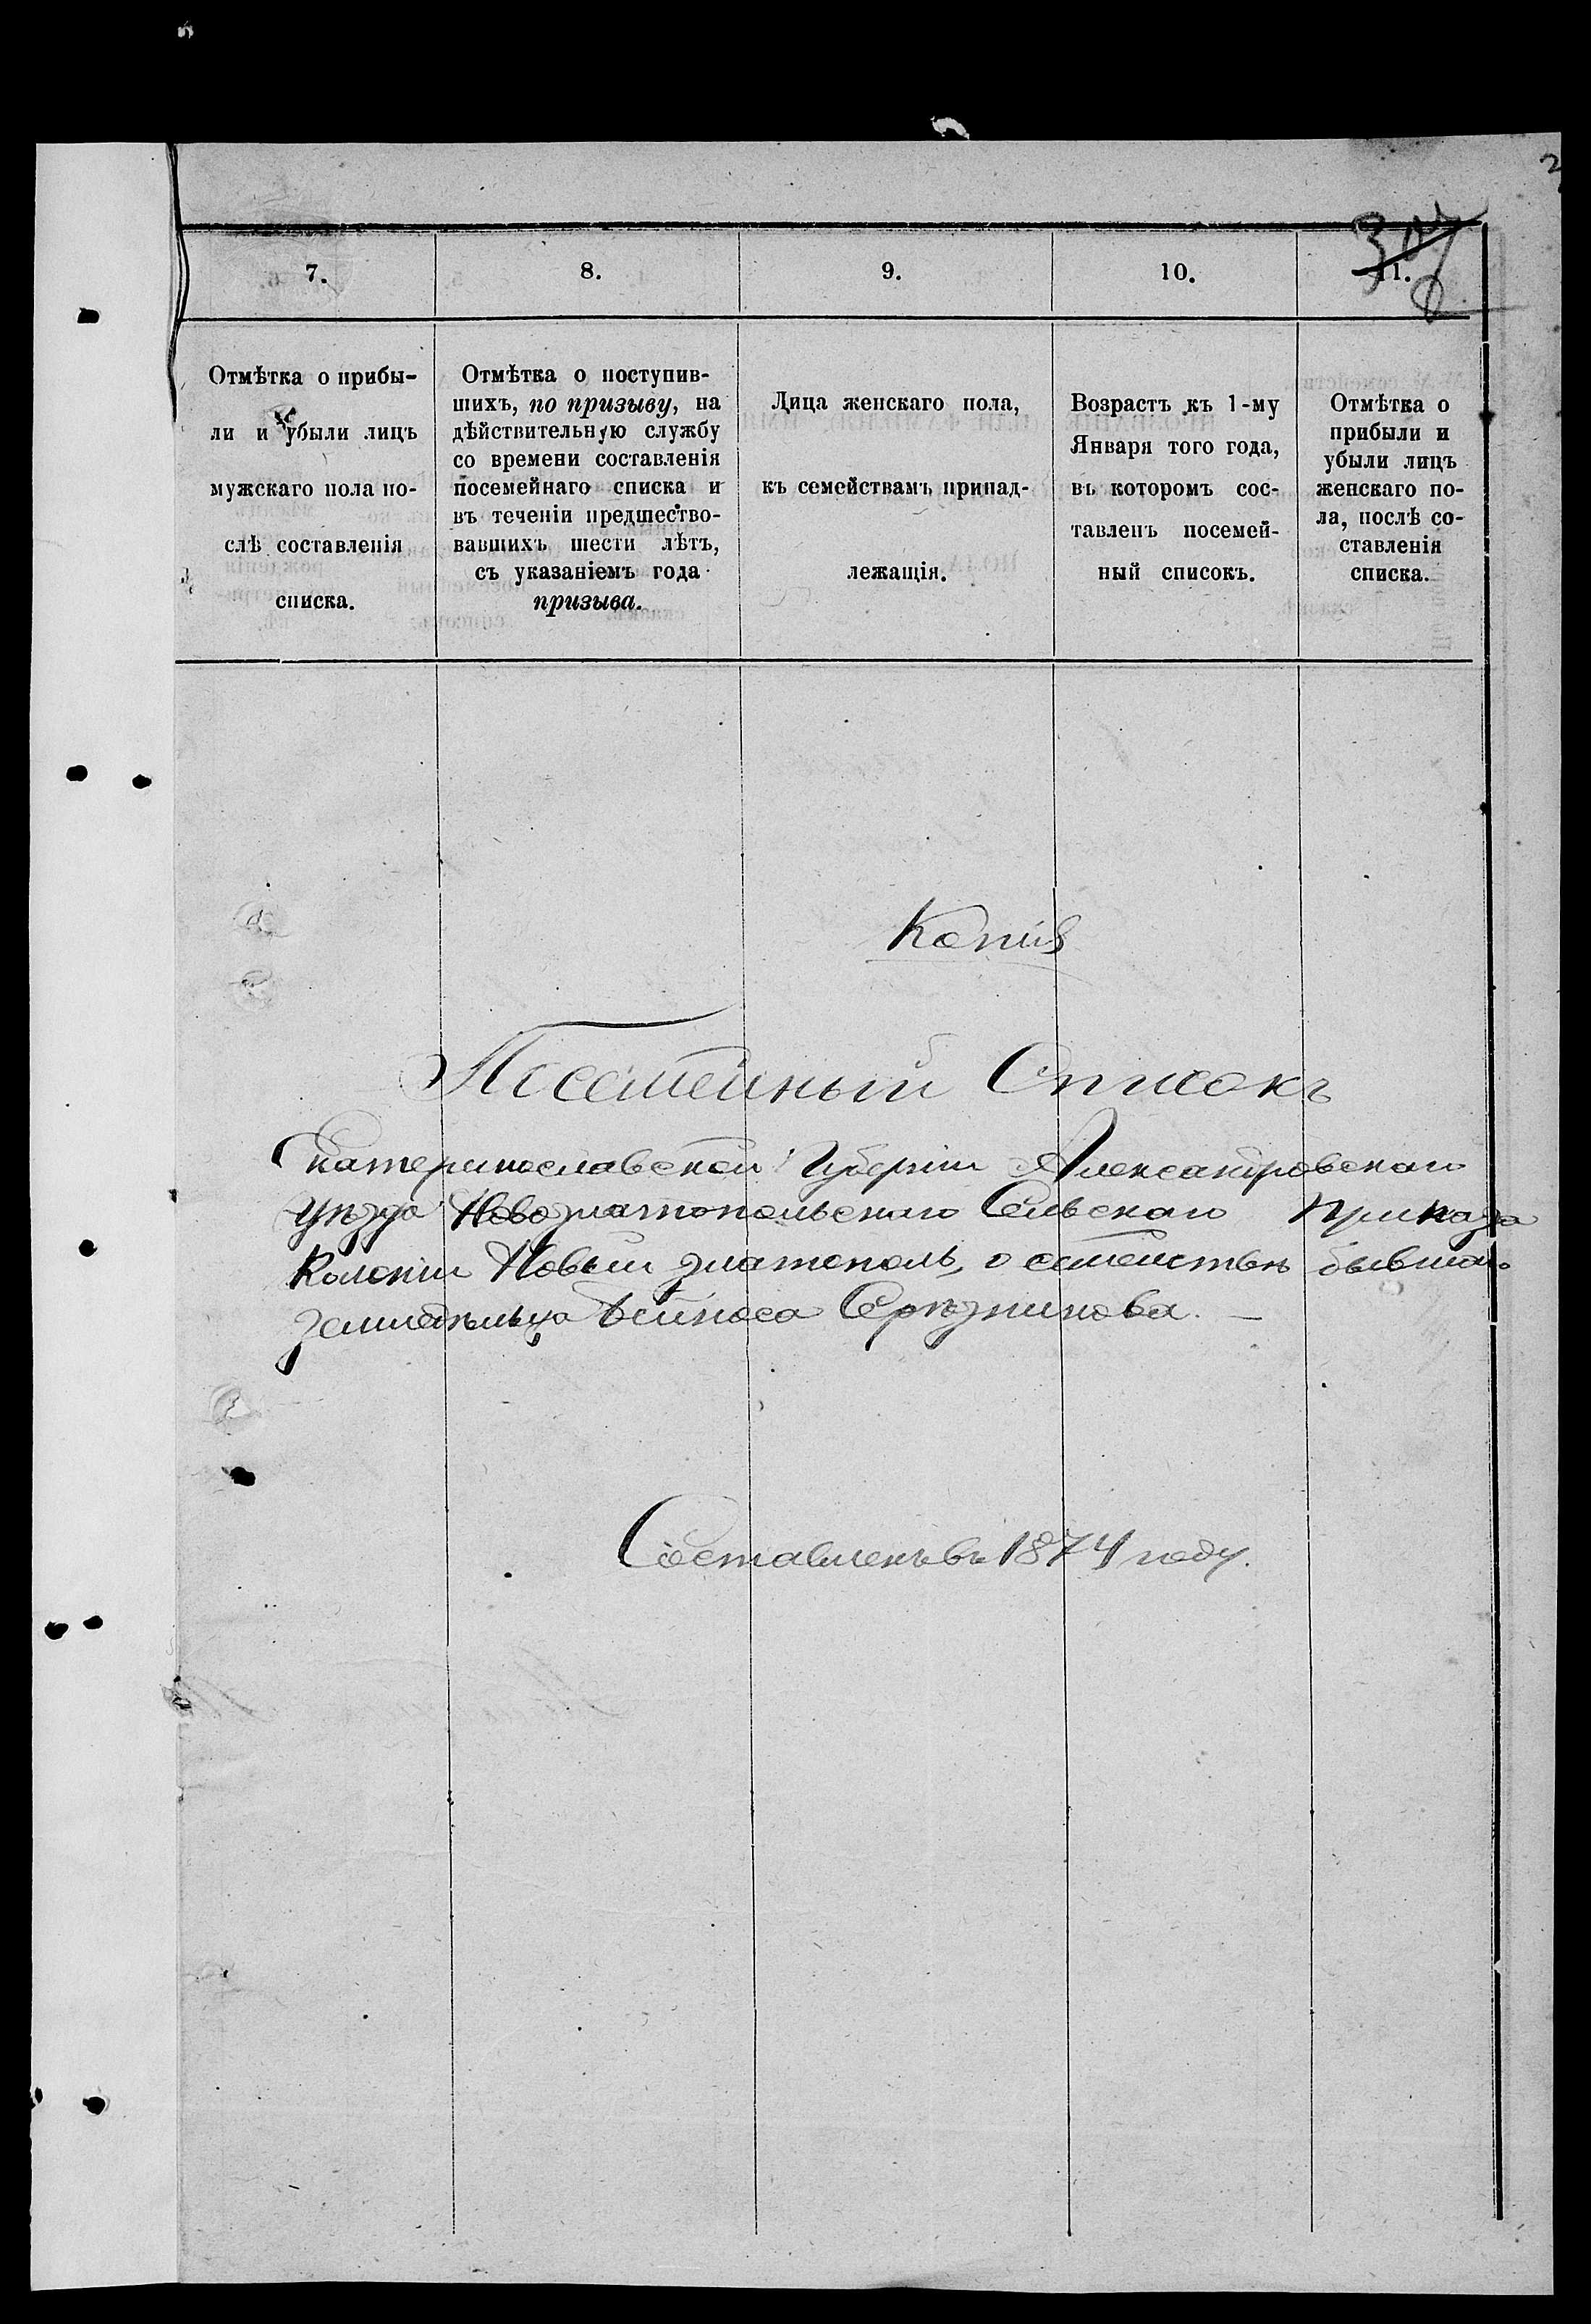 7.
8.
9.
10.
11.
Отмѣтка о прибы-
ли и убыли лицъ
мужскаго пола по-
слѣ составленія
списка.
Отмѣтка о поступив-
шихъ, по призыву, на
дѣйствительную службу
со времени составленія
посемейнаго списка и
въ теченіи предшество-
вавшихъ шести лѣтъ,
съ указаніемъ года
призыва.
Лица женскаго пола,
къ семействамъ принад-
лежащія.
Возрастъ къ 1-му
Января того года,
въ которомъ сос-
тавленъ посемей-
ный списокъ.
Отмѣтка о
прибыли и
убыли лицъ
женскаго по-
ла, послѣ со-
ставленія
списка.
Копія
Посемейный Списокъ
Екатеринославской Губерніи Александровскаго
уѣзда Новозлатопольскаго Сельскаго Приказа
Колоніи Новый златополь, о семействѣ бывшаго
земледѣльца Бейноса Серѣзникова.
Составленъ въ 1874 году.